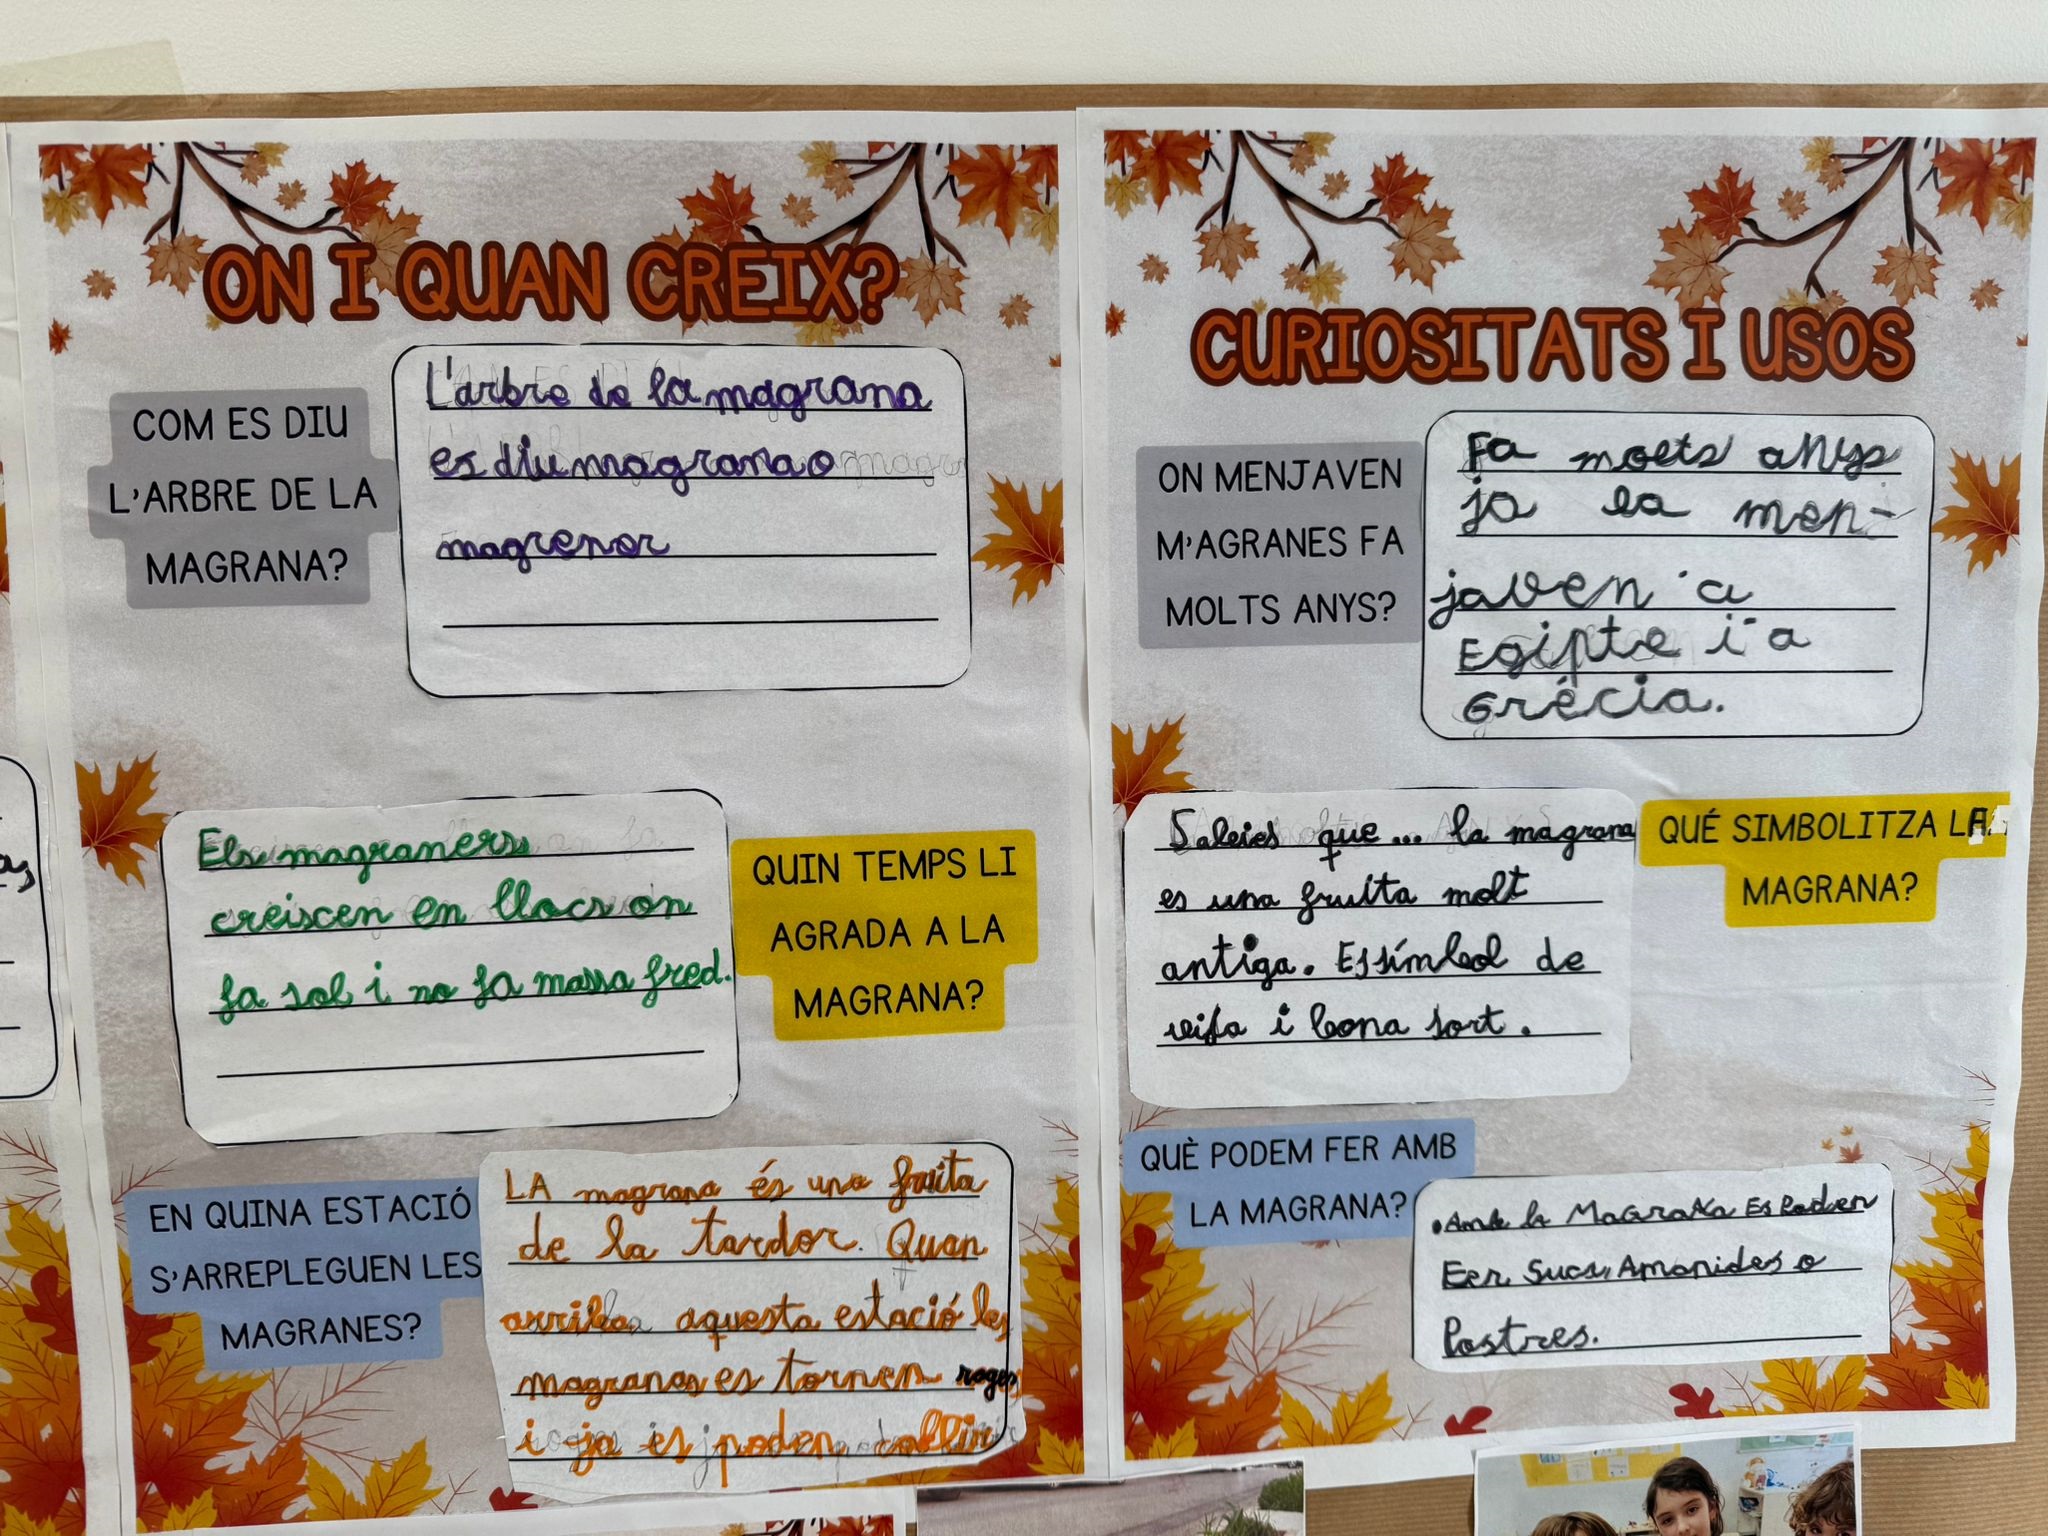 ON I QUAN CREIX?
COM ES DIU
L'ARBRE DE LA
MAGRANA?
L'arbre de la magrana
es diu magranao
magrener
Els magraners
creiscen en llocs on
fa sol i no fa massa fred.
QUIN TEMPS LI
AGRADA A LA
MAGRANA?
EN QUINA ESTACIÓ
S'ARREPLEGUEN LES
MAGRANES?
LA magrana és una fruita
de la tardor. Quan
arriba aquesta estació les
magranes es tornen roges
i ja es poden collir
CURIOSITATS I USOS
ON MENJAVEN
M'AGRANES FA
MOLTS ANYS?
Fa molts anys
ja la men-
javen a
Egipte i a
Grècia.
Sabies que... la magrana
es una fruita molt
antiga. Es símbol de
vida i bona sort.
QUÉ SIMBOLITZA LA
MAGRANA?
QUÈ PODEM FER AMB
LA MAGRANA?
•Amb la MaGraNa Es Poden
Fer Sucs, Amanides o
Postres.